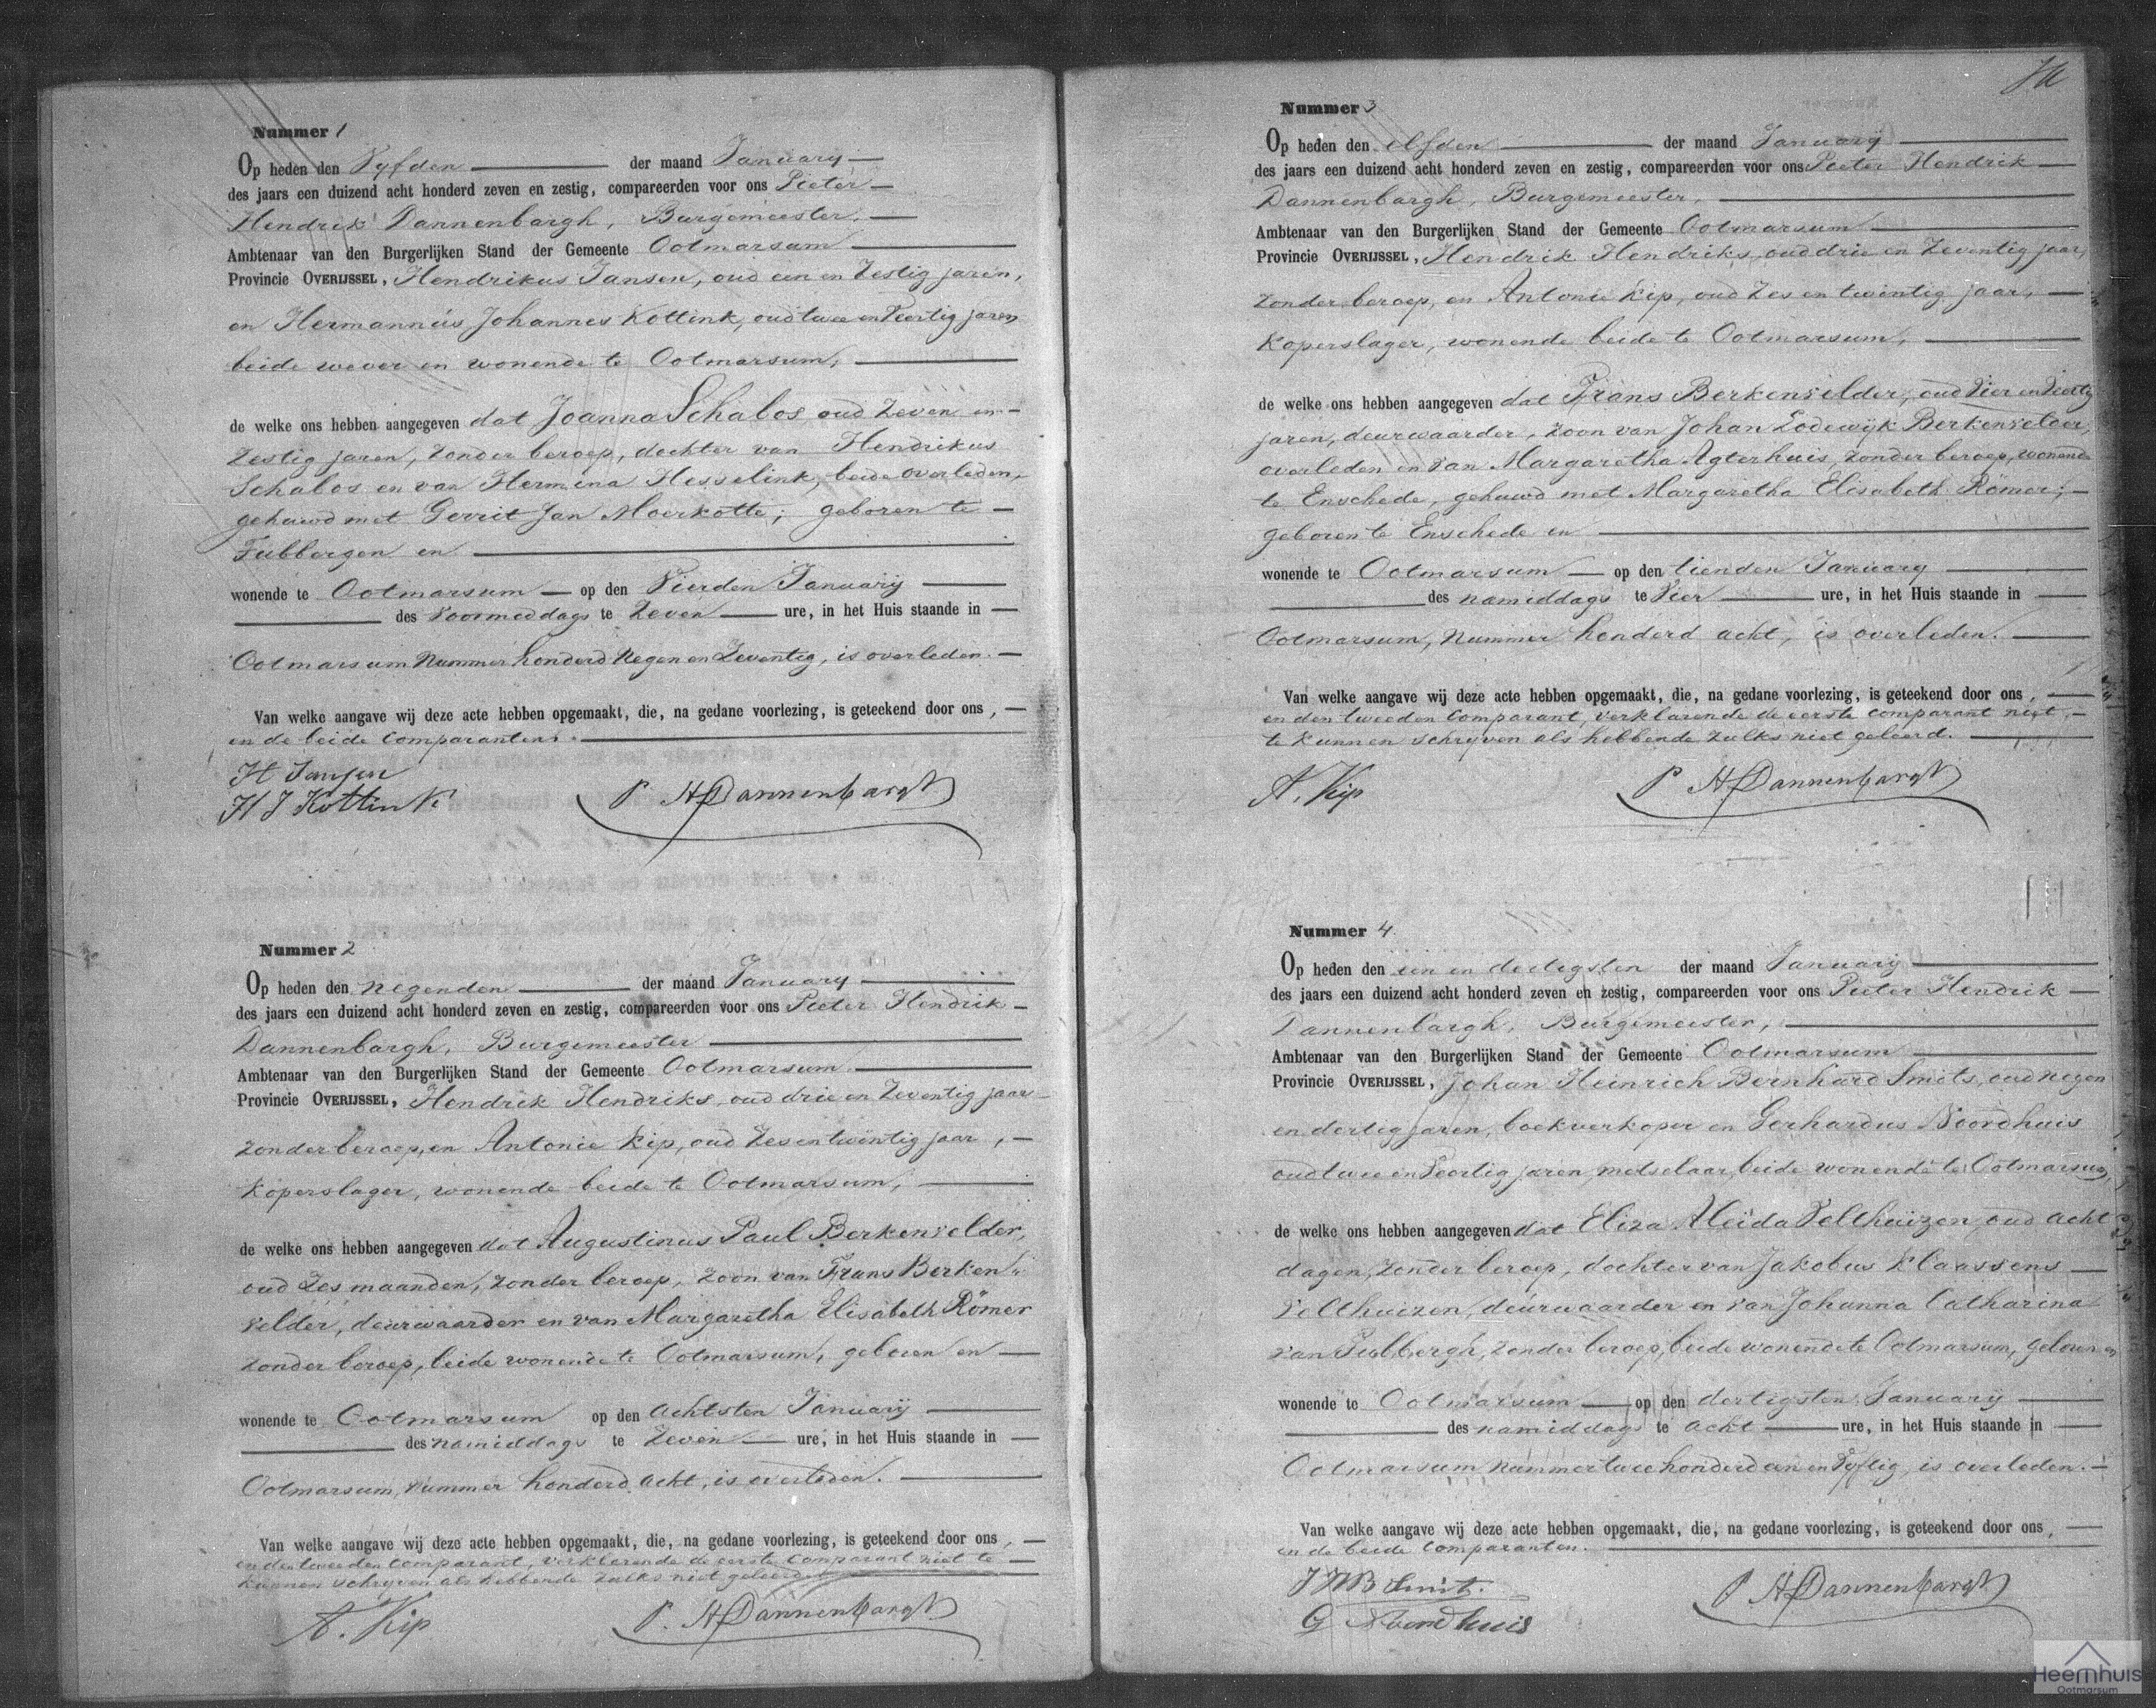 Nummer 1
Op heden den Vyfden der maand January
des jaars een duizend acht honderd zeven en zestig, compareerden voor ons Pieter
Hendrik Dannenbargh, Burgemeester,
Ambtenaar van den Burgerlijken Stand der Gemeente Ootmarsum
Provincie OVERIJSSEL, Hendrikus Jansen, oud een en Zestig jaren,
en Hermannus Johannes Kottink, oud twee en Veertig jaren
beide wever en wonende te Ootmarsum,
de welke ons hebben aangegeven dat Joanna Schabos oud Zeven en
Zestig jaren, zonder beroep, dochter van Hendrikus
Schabos en van Hermina Hesselink, beide overleden,
gehuwd met Gerrit Jan Moerkotte; geboren te
Tubbergen en
wonende te Ootmarsum op den Vierden January
des Voormiddags te Zeven ure, in het Huis staande in
Ootmarsum Nummer honderd Negen en Zeventig, is overleden.
Van welke aangave wij deze acte hebben opgemaakt, die, na gedane voorlezing, is geteekend door ons,
en de beide Comparanten.
H Jansen
H J Kottink
P H Dannenbargh
Nummer 2
Op heden den Negenden der maand January
des jaars een duizend acht honderd zeven en zestig, compareerden voor ons Pieter Hendrik
Dannenbargh, Burgemeester
Ambtenaar van den Burgerlijken Stand der Gemeente Ootmarsum
Provincie OVERIJSSEL, Hendrik Hendriks, oud drie en Zeventig jaar
zonder beroep, en Antonie Kip, oud Zes en twintig jaar,
Koperslager, wonende beide te Ootmarsum,
de welke ons hebben aangegeven dat Augustinus Paul Berkenvelder,
oud Zes maanden, zonder beroep, zoon van Frans Berken
velder, deurwaarder en van Margaretha Elisabeth Römer
zonder beroep, beide wonende te Ootmarsum, geboren en
wonende te Ootmarsum op den Achtsten January
des namiddags te Zeven ure, in het Huis staande in
Ootmarsum, Nummer honderd acht, is overleden.
Van welke aangave wij deze acte hebben opgemaakt, die, na gedane voorlezing, is geteekend door ons,
en den tweeden Comparant, verklarende de eerste Comparant niet te
kunnen schryven als hebbende zulks niet geleerd
A. Kip
P. H Dannenbargh
Nummer 3
Op heden den elfden der maand January
des jaars een duizend acht honderd zeven en zestig, compareerden voor ons Pieter Hendrik
Dannenbargh, Burgemeester,
Ambtenaar van den Burgerlijken Stand der Gemeente Ootmarsum
Provincie OVERIJSSEL, Hendrik Hendriks, oud drie en Zeventig jaar,
zonder beroep, en Antonie Kip, oud Zes en twintig jaar,
Koperslager, wonende beide te Ootmarsum,
de welke ons hebben aangegeven dat Frans Berkenvelder, oud Vier en Veertig
jaren, deurwaarder, zoon van Johan Lodewyk Berkenvelder,
overleden en van Margaretha Agterhuis, zonder beroep, wonende
te Enschede, gehuwd met Margaretha Elisabeth Römer;
geboren te Enschede en
wonende te Ootmarsum op den tienden January
des namiddags te Vier ure, in het Huis staande in
Ootmarsum, Nummer honderd acht, is overleden.
Van welke aangave wij deze acte hebben opgemaakt, die, na gedane voorlezing, is geteekend door ons,
en den tweeden Comparant, verklarende de eerste Comparant niet
te kunnen schryven als hebbende zulks niet geleerd.
A. Kip
P H Dannenbargh
Nummer 4
Op heden den een en dertigsten der maand January
des jaars een duizend acht honderd zeven en zestig, compareerden voor ons Pieter Hendrik
Dannenbargh, Burgemeester,
Ambtenaar van den Burgerlijken Stand der Gemeente Ootmarsum
Provincie OVERIJSSEL, Johan Heinrich Bernhard Smits, oud negen
en dertig jaren, boekverkoper en Gerhardus Noordhuis
oud twee en Veertig jaren, metselaar, beide wonende te Ootmarsum,
de welke ons hebben aangegeven dat Eliza Aleida Velthuizen, oud acht
dagen, zonder beroep, dochter van Jakobus Klaassens
Velthuizen, deurwaarder en van Johanna Catharina
van, zonder beroep, beide wonende te Ootmarsum, geboren en
wonende te Ootmarsum op den dertigsten January
des namiddags te acht ure, in het Huis staande in
Ootmarsum nummer twee honderd een en Vyftig, is overleden.
Van welke aangave wij deze acte hebben opgemaakt, die, na gedane voorlezing, is geteekend door ons,
en de beide Comparanten.
J H B Smit.
G Noordhuis
P H Dannenbargh
Heemhuis
Ootmarsum